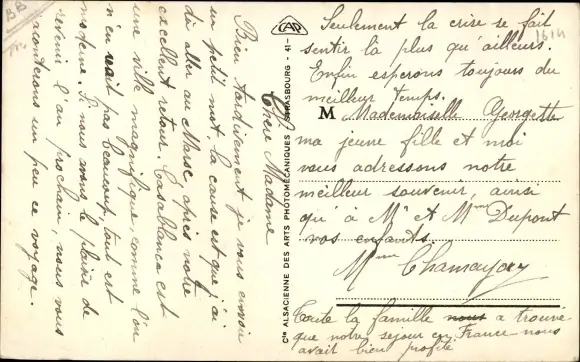 Chère Madame
Bien tardivement je vous envoie
un petit mot, la cause est que j'ai
dû aller au Maroc après notre
excellent retour. Casablanca est
une ville magnifique, comme l'on
n'en voit pas beaucoup, tout est
moderne. Si nous avons le plaisir de
revenir l'an prochain, nous vous
raconterons un peu ce voyage.
Seulement la crise se fait
sentir là plus qu'ailleurs.
Enfin esperons toujours du
meilleur temps.
M Mademoiselle Georgette
ma jeune fille et moi
vous adressons notre
meilleur souvenir, ainsi
qu'à Mr et Mme Dupont
vos enfants.
Mme
Toute la famille nous a trouvé
que notre séjour en France nous
avait bien profité
CAP
Cie ALSACIENNE DES ARTS PHOTOMÉCANIQUES STRASBOURG - 41 -
1614
BB